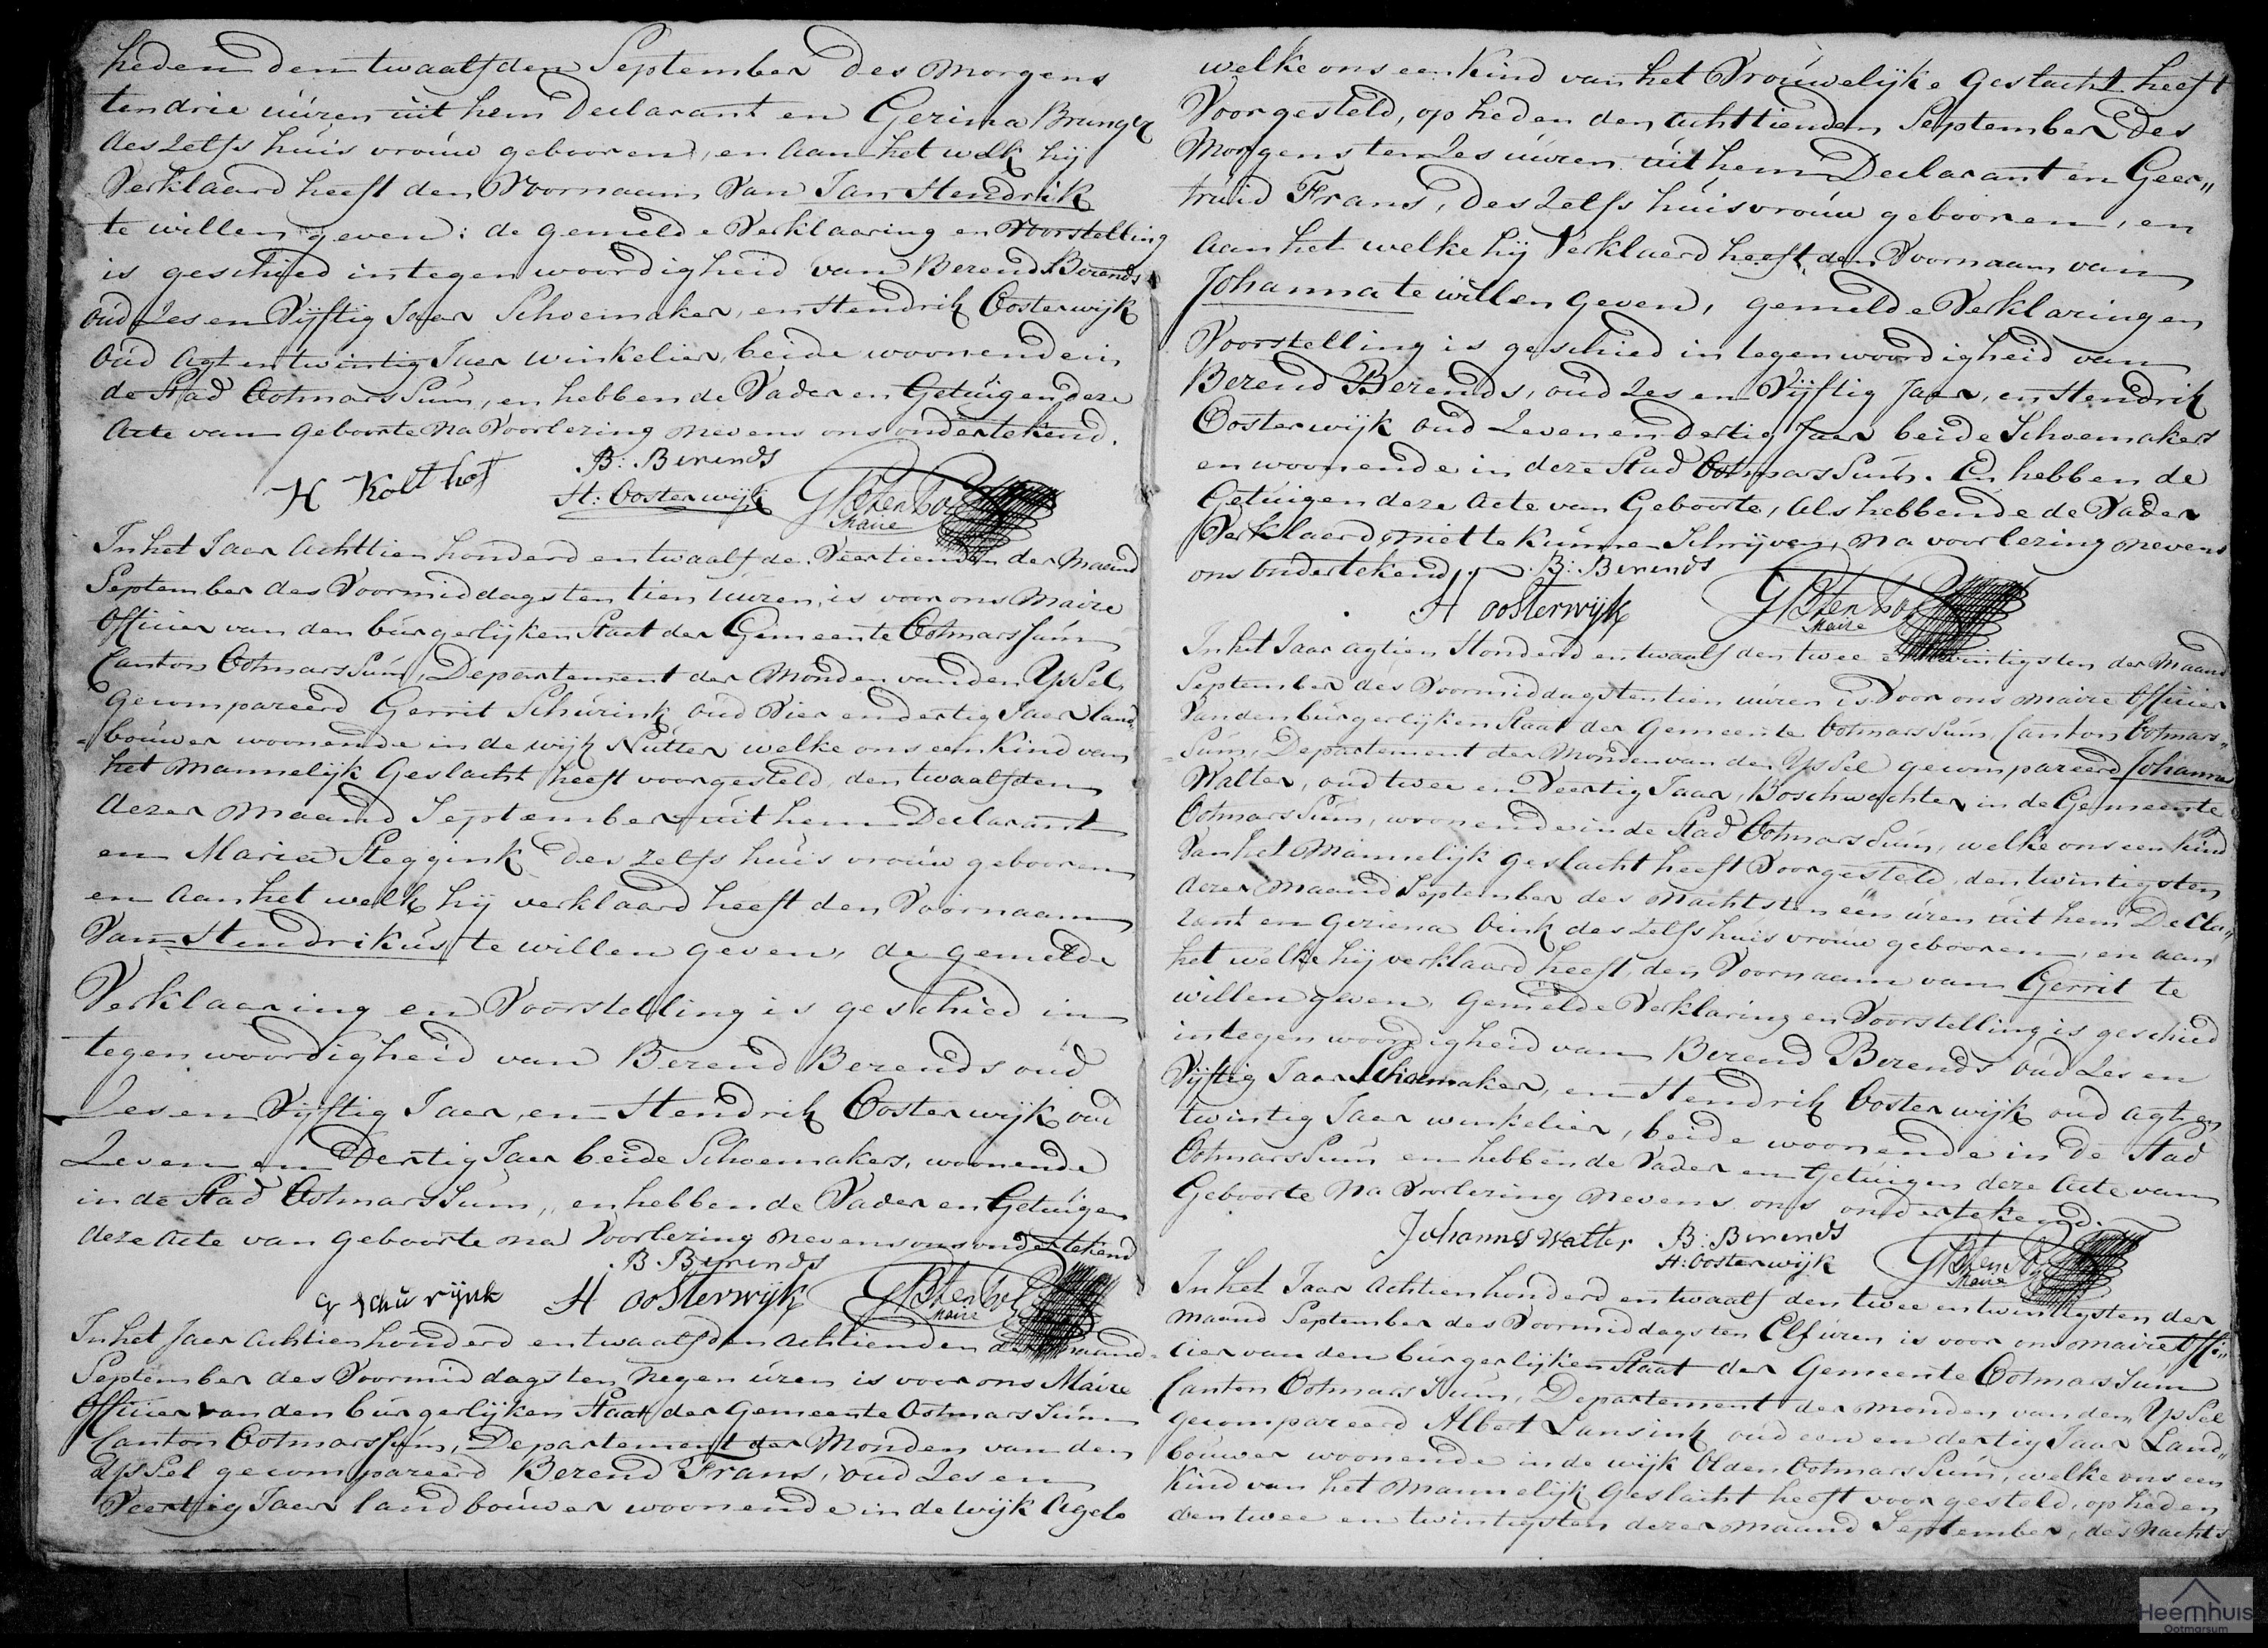 heden den twaalfden September des morgens
ten drie uúren úit hem Declarant en Gezina Brunger
deszelfs húis vroúw gebooren, en aan het welk hij
Verklaard heeft den Voornaam Van Jan Hendrik
te willen geven: de gemelde Verklaaring en Voorstelling
is geschied in tegenwoordigheid van Berend Berends
oúd Zes en Vijftig Jaer Schoemaker, en Hendrik Oosterwijk
oúd Agt en twintig Jaer winkelier, beide woonende in
de Stad OotmarsSum, en hebben de Vader en Getúigen deze
Acte van geboorte na Voorlezing nevens ons ondertekend.
H Kolthof B: Berends
H: Oosterwijk
Maire
In het Jaar Achttien honderd en twaalf de Veertienden der Maand
September des Voormiddags ten tien úúren, is voor ons Maire
Officier van den búrgerlijken Staat der Gemeente OotmarsSúm
Canton OotmarsSúm, Departement der Monden van den YsSel,
gecompareerd Gerrit Schúrink oúd Vier en dertig Jaer land
=boúwer woonende in de wijk Nútter welke ons een Kind van
het Mannelijk Geslacht heeft voorgesteld, den twaalfden
dezer Maand September úit hem Declarant
en Maria Steggink des zelfs húis vroúw gebooren
en aan het welk hij verklaard heeft den Voornaam
Van Hendrikús te willen geven, de gemelde
Verklaaring en Voorstelling is geschied in
tegenwoordigheid van Berend Berends oúd
Zes en Vijftig Jaer, en Hendrik Oosterwijk oud
Zeven en Dertig Jaer beide Schoemakers, woonende
in de Stad OotmarsSum, en hebben de Vader en Getúigen
deze Acte van geboorte na Voorlezing nevens ons ondertekend
B. Berends
G Schurijnk H oosterwijk
Maire
In het Jaer Achtien honderd en twaalf den Achtienden der maand
September des Voormiddags ten Negen úren is voor ons Maire
Officier van den búrgerlijken Staat der Gemeente OotmarsSúm
Canton OotmarsSúm, Departement der Monden van den
YsSel gecompareerd Berend Frans, oud Zes en
Veertig Jaer landboúwer woonende in de wijk Agelo
welke ons een Kind van het Vroúwelijke Geslacht heeft
Voorgesteld, op heden den achttienden September des
Morgens ten Zes úúren úit hem Declarant en Geer"
truid Frans, des Zelfs húisvroúw gebooren, en
aan het welke hij Verklaerd heeft den Voornaam van
Johanna te willen geven, gemelde Verklaring en
Voorstelling is geschied in tegenwoordigheid van
Berend Berends, oud Zes en Vijftig Jaer, en Hendrik
Oosterwijk oud Zeven en dertig Jaer beide Schoemakers
en woonende in deze Stad OotmarsSúm. En hebben de
Getúigen deze Acte van Geboorte, Als hebbende de Vader
Verklaerd niet te kúnnen Schrijven, na voorlezing nevens
ons ondertekend. B: Berends
H oosterwijk
Maire
In het Jaar agtien Honderd en twaalf den twee en twintigsten der Maand
September des Voormiddags ten tien úúren is Voor ons Maire Officier
Van den búrgerlijken Staat der Gemeente OotmarsSúm, Canton Ootmars"
=Súm, Departement der Monden van den YsSel gecompareerd Johannes
Walter, oúd twee en Veertig Jaar, Boschwachter in de Gemeente
OotmarsSúm, woonende in de Stad OotmarsSúm, welke ons een Kind
Van het Mannelijk geslacht heeft Voorgesteld, den twintigsten
dezer Maand September des Nachts ten één úren úit hem Decla"
rant en Geziena Oink des zelfs huis vroúw gebooren, en aan
het welke hij verklaard heeft, den Voornaam van Gerrit te
willen geven, gemelde Verklaring en Voorstelling is geschied
in tegenwoordigheid van Berend Berends oúd Zes en
Vijftig Jaar Schoemaker, en Hendrik Oosterwijk oúd Agt en
twintig Jaer winkelier, beide woonende in de Stad
OotmarsSúm en hebben de Vader en Getúigen deze Acte van
Geboorte Na Voorlezing nevens ons ondertekend.
Johannes Walter B: Berends
H: Oosterwijk
Maire
In het Jaar Achtien honderd en twaalf den twee en twintigsten der
maand September des Voormiddags ten Elf úren is voor ons maire Offi"
cier van den búrgerlijken Staat der Gemeente OotmarsSum
Canton OotmarsSúm, Departement der monden van den YsSel
gecompareerd Albert Lansink oúd een en dertig Jaar Land"
boúwer woonende in de wijk Olden OotmarsSúm, welke ons een
Kind van het Mannelijk Geslacht heeft voorgesteld, op heden
den twee en twintigsten dezer maand September, des Nachts
Heemhuis
Ootmarsum